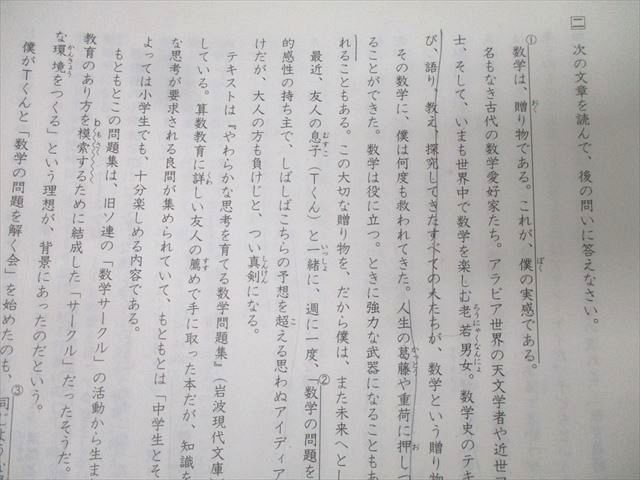 二 次の文章を読んで、後の問いに答えなさい。
①数学は、贈り物である。これが、僕の実感である。
名もなき古代の数学愛好家たち。アラビア世界の天文学者や近世
士、そして、いまも世界中で数学を楽しむ老若男女。数学史のテキ
び、語り、教え、探究してきたすべての人たちが、数学という贈り物
その数学に、僕は何度も救われてきた。人生の葛藤や重荷に押しつ
ることができた。数学は役に立つ。ときに強力な武器になることもあ
れることもある。この大切な贈り物を、だから僕は、また未来へとし
最近、友人の息子(Tくん)と一緒に、週に一度、②「数学の問題を
的感性の持ち主で、しばしばこちらの予想を超える思わぬアイディア
けだが、大人の方も負けじと、つい真剣になる。
テキストは『やわらかな思考を育てる数学問題集』(岩波現代文庫
している。算数教育に詳しい友人の薦めで手に取った本だが、知識を
な思考が要求される良問が集められていて、もともとは「中学生とそ
よっては小学生でも、十分楽しめる内容である。
もともとこの問題集は、旧ソ連の「数学サークル」の活動から生ま
教育のあり方をb模索するために結成した「サークル」だったそうだ。
な環境をつくる」という理想が、背景にあったのだという。
僕がTくんと「数学の問題を解く会」を始めたのも、③同じような